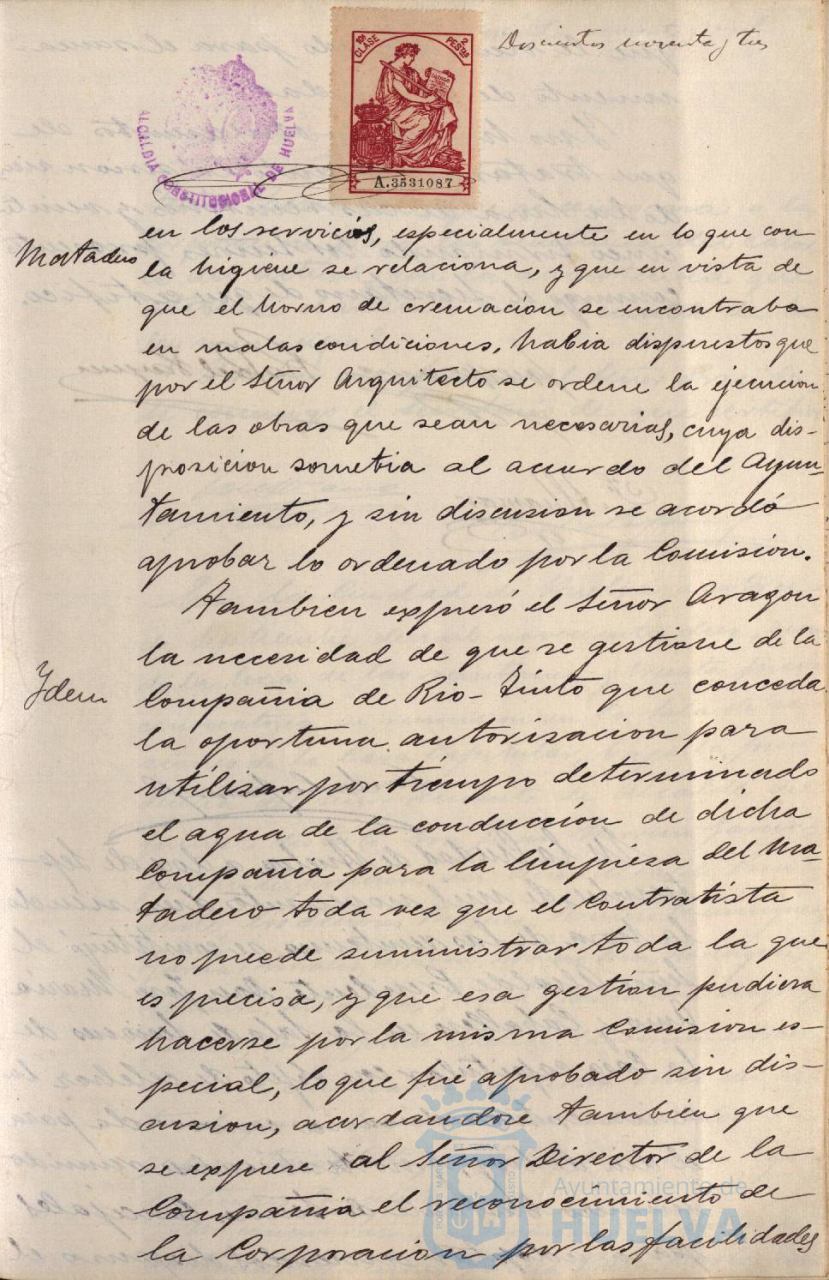 Doscientos noventa y tres
10ª CLASE
2 PESTAS
ALCALDIA CONSTITUCIONAL DE HUELVA
A.3531087
Matadero
en los servicios, especialmente en lo que con
la higiene se relaciona, y que en vista de
que el horno de cremacion se encontraba
en malas condiciones, habia dispuestos que
por el Señor Arquitecto se ordene la ejecucion
de las obras que sean necesarias, cuya dis-
posicion sometia al acuerdo del Ayun-
tamiento, y sin discusion se acordó
aprobar lo ordenado por la Comision.
Tambien expresó el Señor Aragon
la necesidad de que se gestione de la
Ydem
Compañia de Rio-Tinto que conceda
la oportuna autorizacion para
utilizar por tiempo determinado
el agua de la conducción de dicha
Compañia para la limpiesa del Ma-
tadero toda vez que el Contratista
no puede suministrar toda la que
es precisa, y que esa gestion pudiera
hacerse por la misma Comision es-
pecial, lo que fué aprobado sin dis-
cusion, acordandose tambien que
se exprese al Señor Director de la
Compañia el reconocimiento de
la Corporacion por las facilidades
Ayuntamiento de
HUELVA